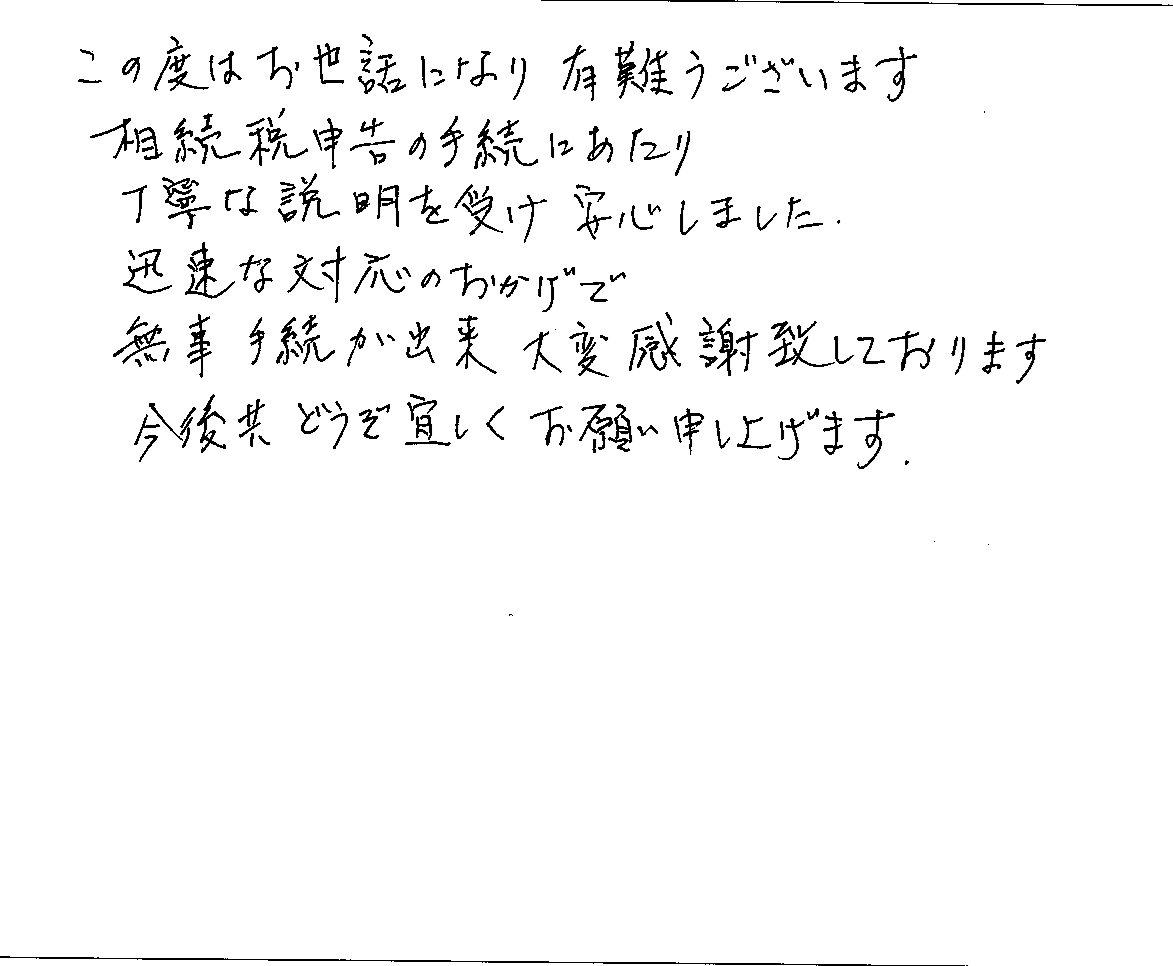 この度はお世話になり 有難うございます
相続税申告の手続にあたり
丁寧な説明を受け 安心しました.
迅速な対応のおかげで
無事 手続が出来 大変感謝致しております
今後共 どうぞ宜しく お願い申し上げます.